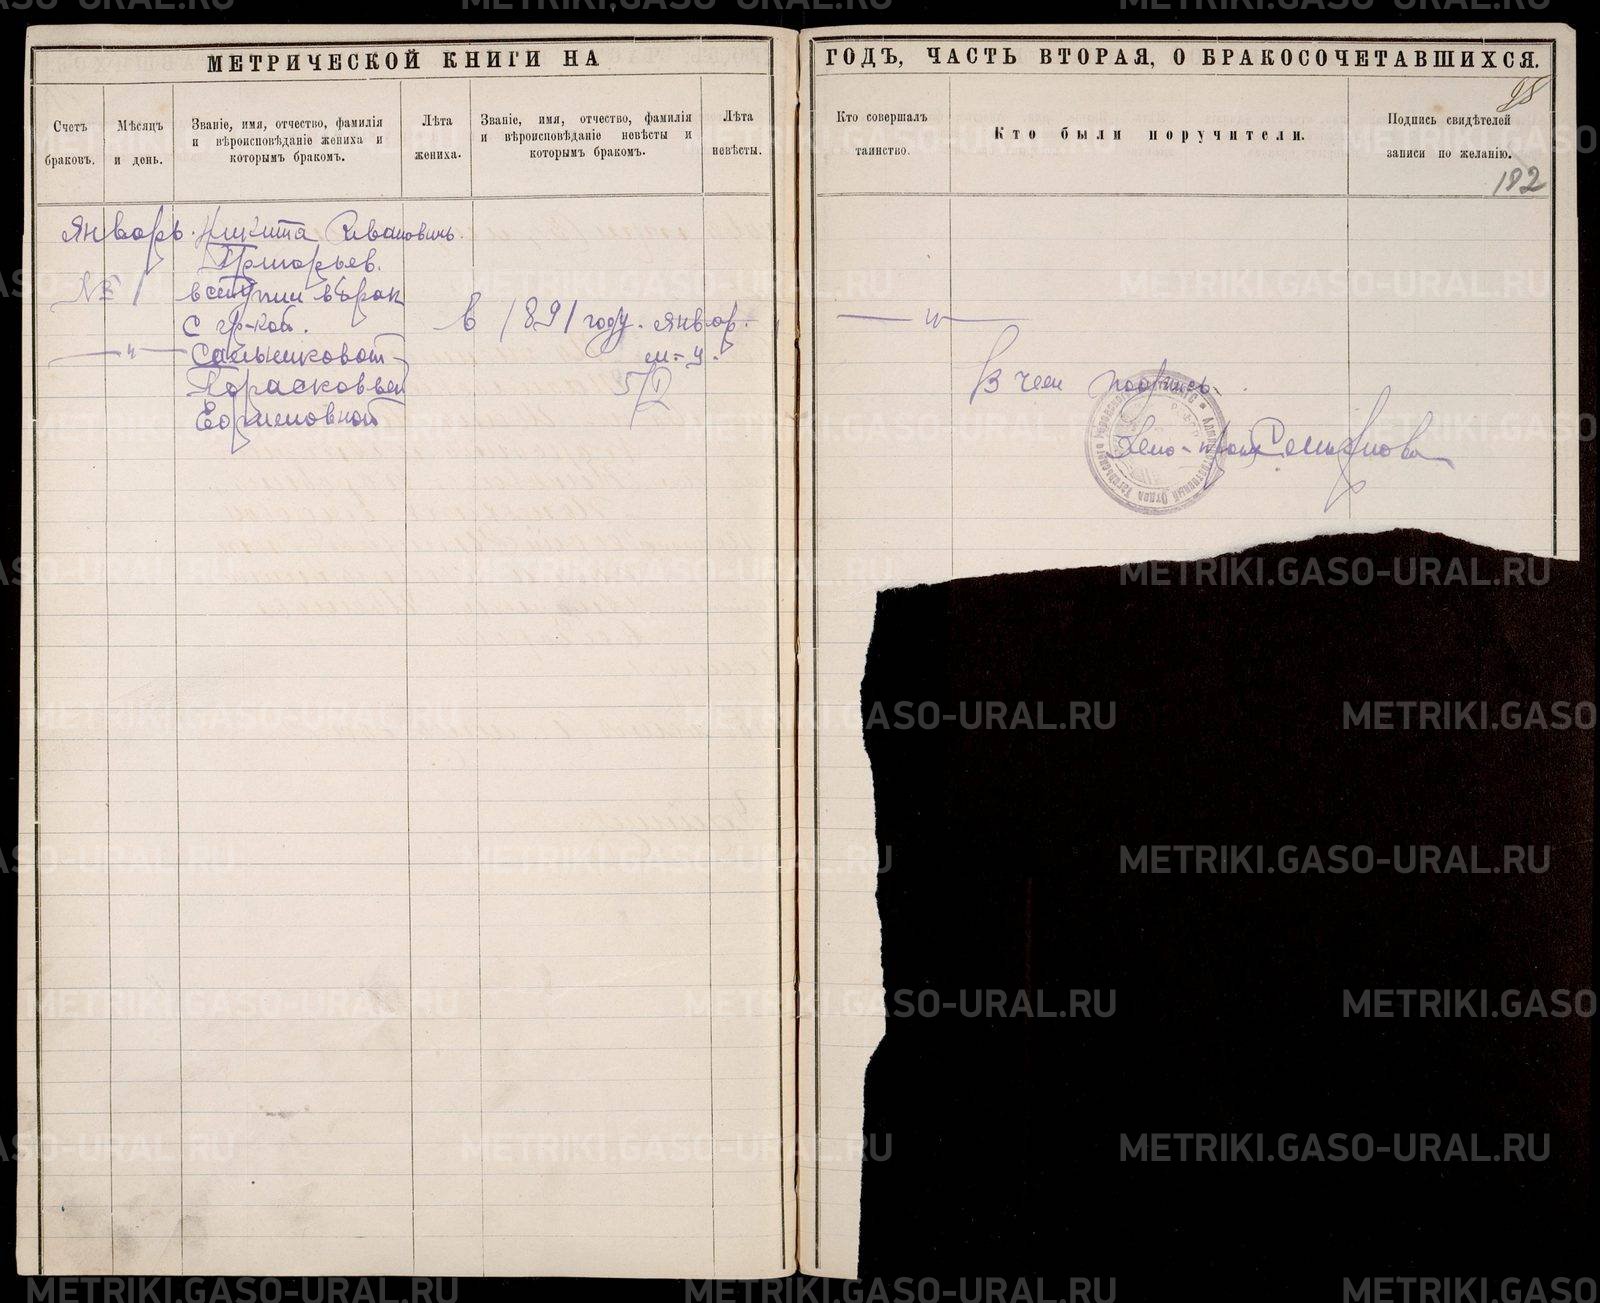 МЕТРИЧЕСКОЙ КНИГИ НА
Счетъ браковъ.
Мѣсяцъ и день.
Званіе, имя, отчество, фамилія и вѣроисповѣданіе жениха и которымъ бракомъ.
Лѣта жениха.
Званіе, имя, отчество, фамилія и вѣроисповѣданіе невѣсты и которымъ бракомъ.
Лѣта невѣсты.
Январь. Никита Иванович.
Григорьев.
№ 1 вступил в брак
с гр-кой. в 1891 году. январ.
— „ — Сальниковой м-ц.
Парасковьей 5/I
Ефимовной
ГОДЪ, ЧАСТЬ ВТОРАЯ, О БРАКОСОЧЕТАВШИХСЯ.
98
Кто совершалъ таинство.
Кто были поручители.
Подпись свидѣтелей записи по желанію.
182
— „ —
В чем
METRIKI.GASO-URAL.RU